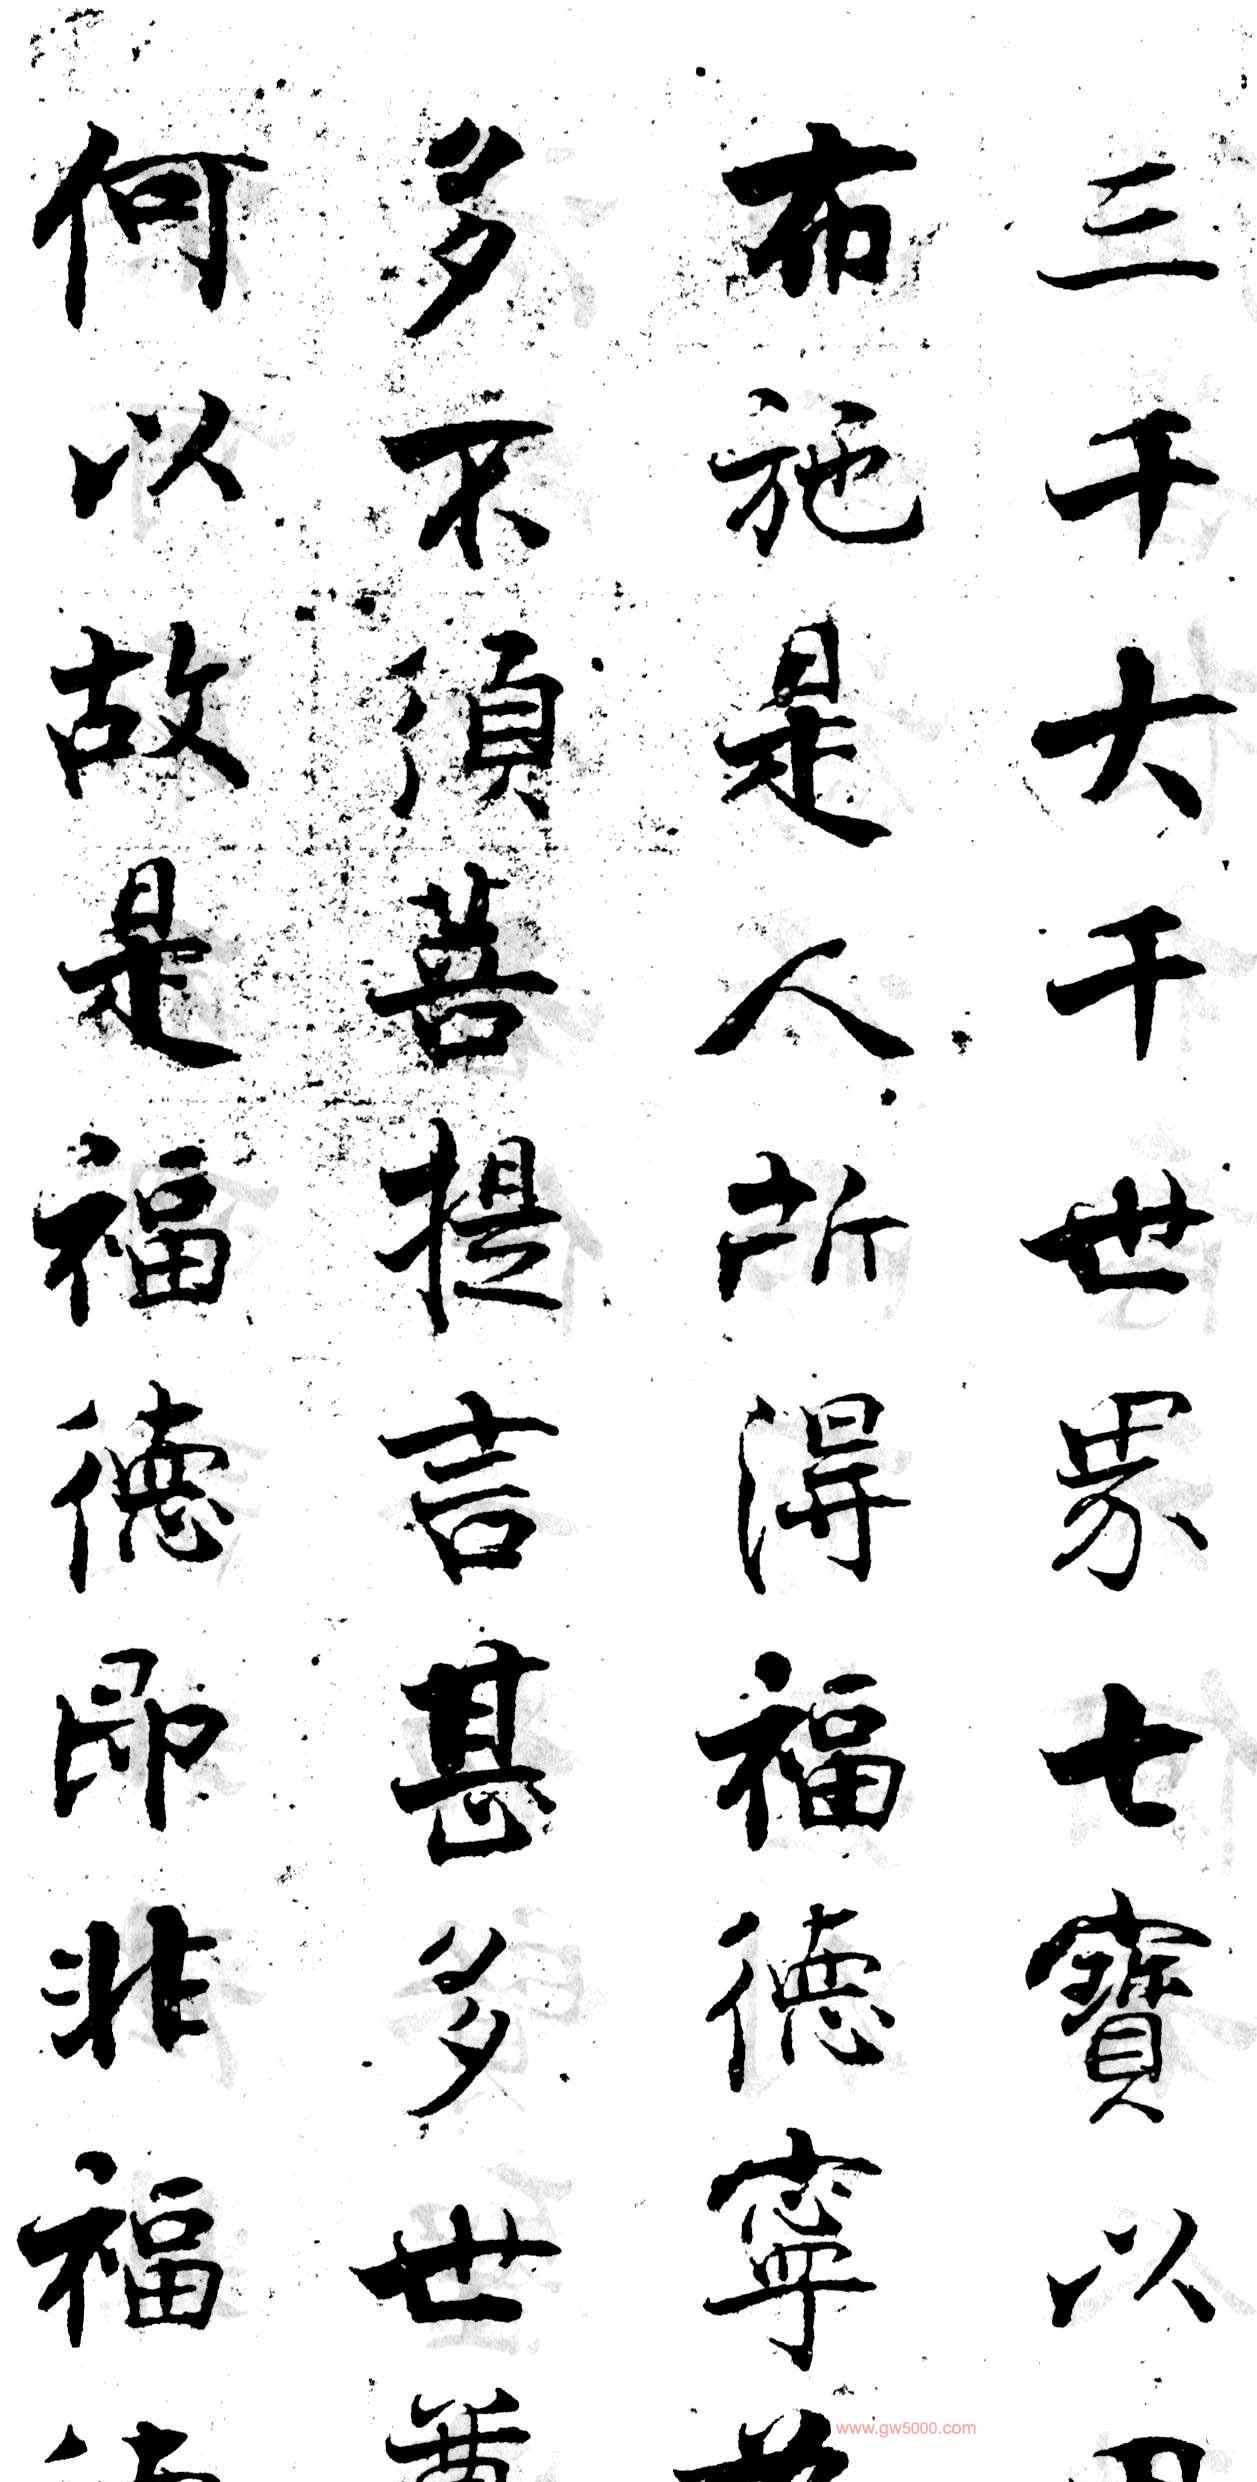 三千大千世界七寶以用
布施是人所得福德寧
多不須菩提言甚多世尊
何以故是福德即非福德
www.gw5000.com